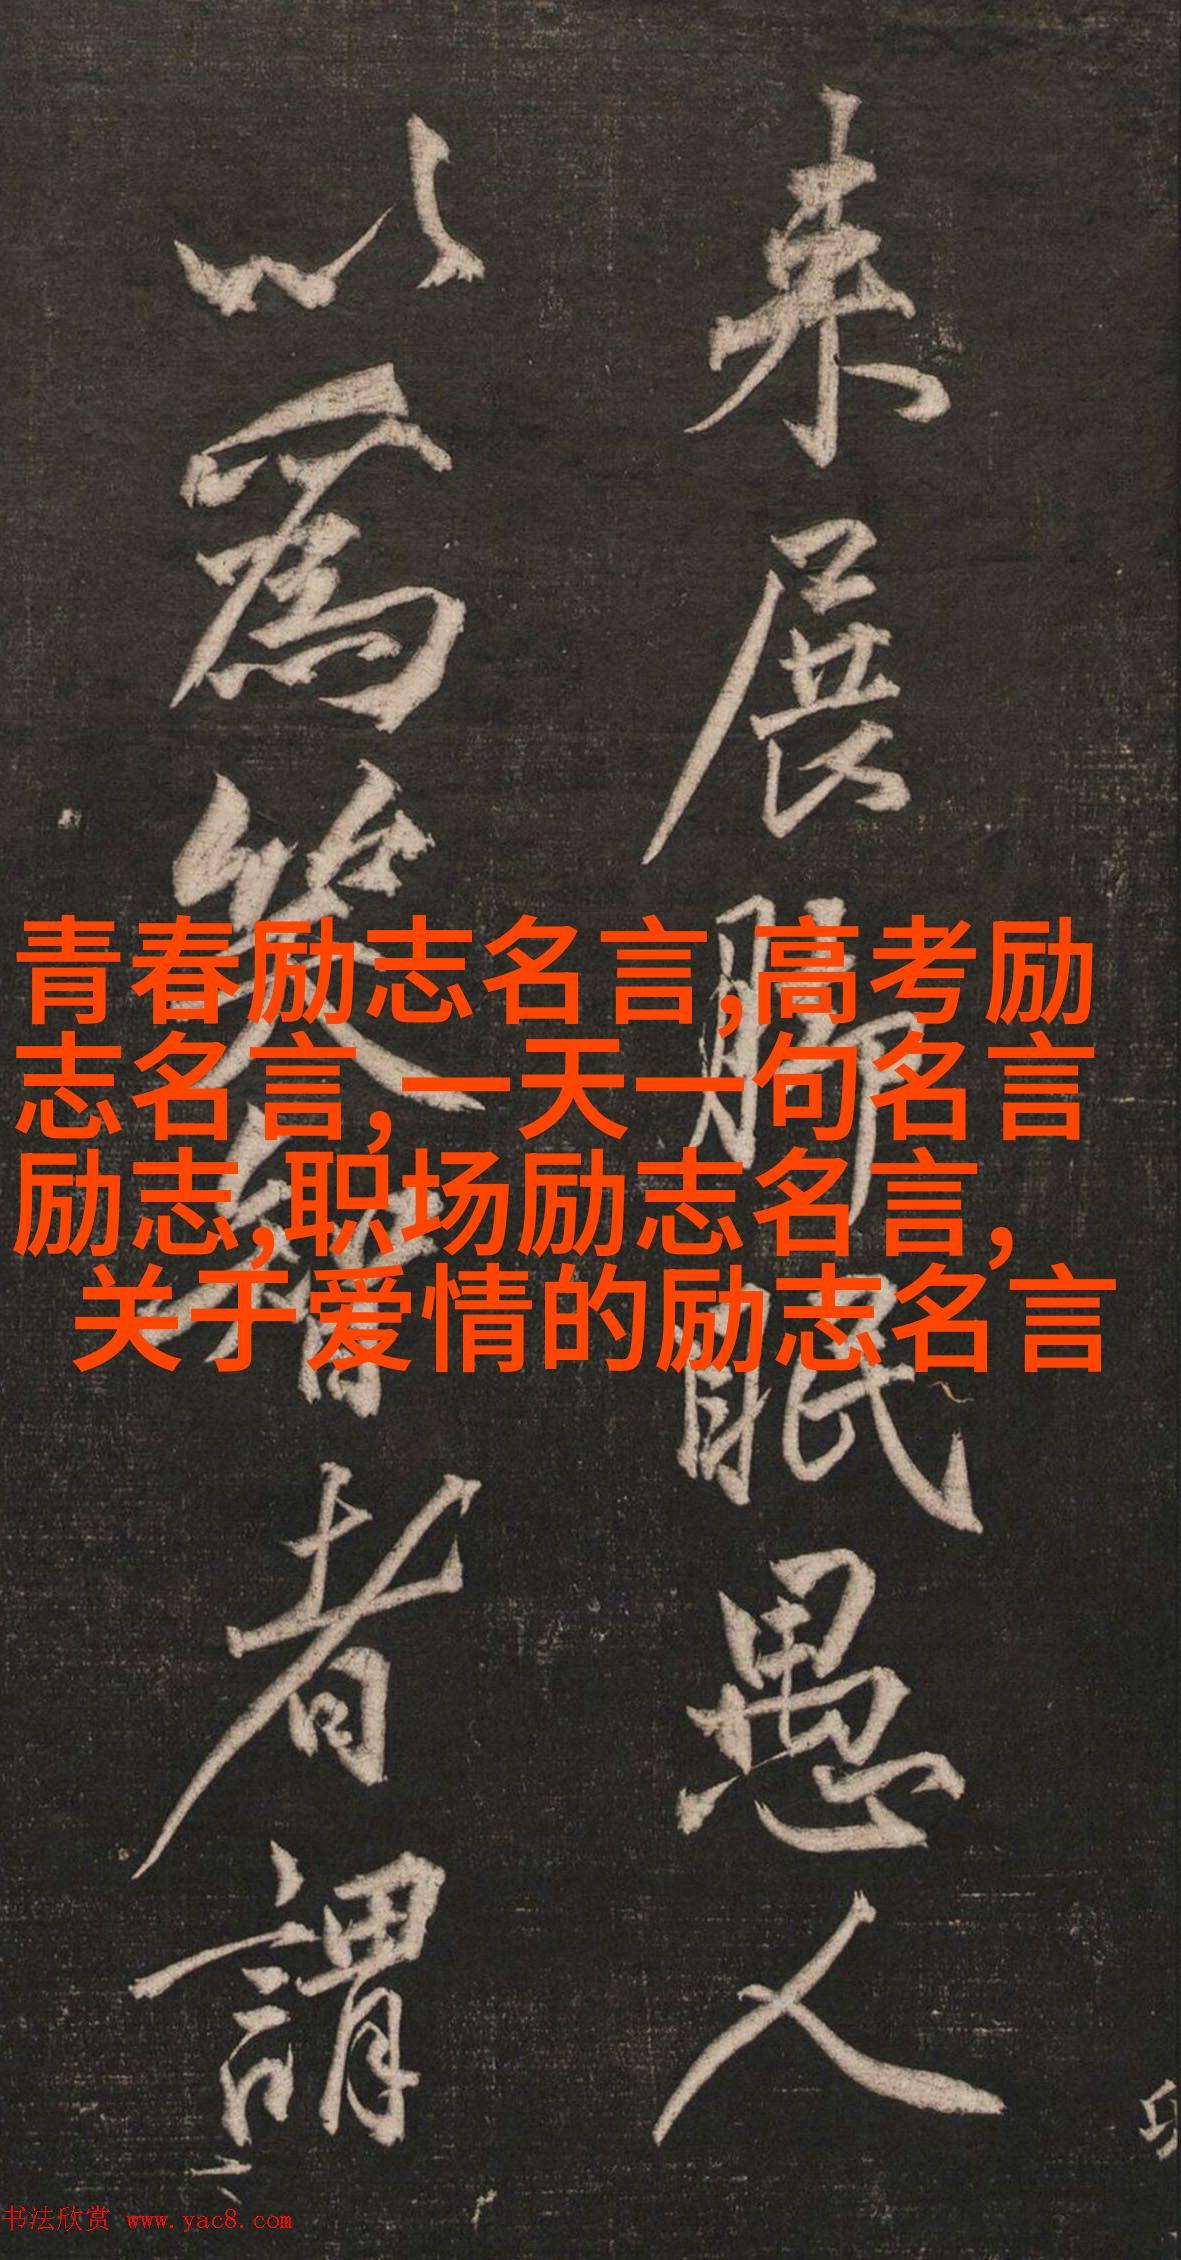 来展脚眠愚人
以为笑智者谓
青春励志名言,高考励
志名言,一天一句名言
励志,职场励志名言,
关于爱情的励志名言
书法欣赏 www.yac8.com